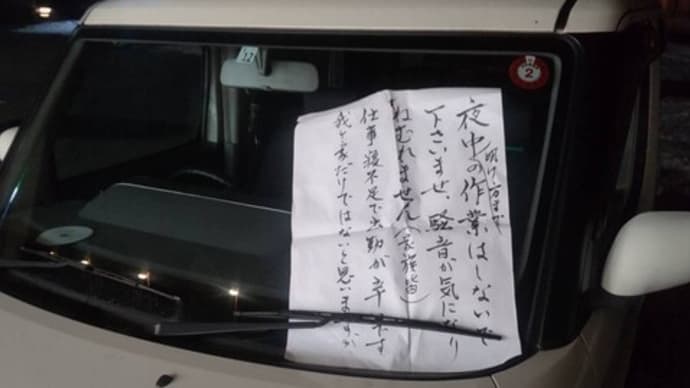 夜中の作業はしないで
明け方まで
下さいませ、騒音が気になり
ねむれません(家族皆)
仕事寝不足で出勤が辛いです
我が家だけではないと思いますが
12
2